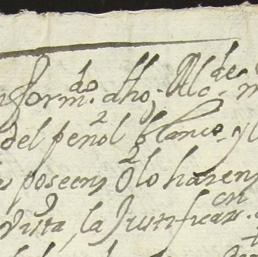 form.do dho; Alc.des m
del peñol blanco, y l
poseen, o lo hazen
vista, la Justificaz.on